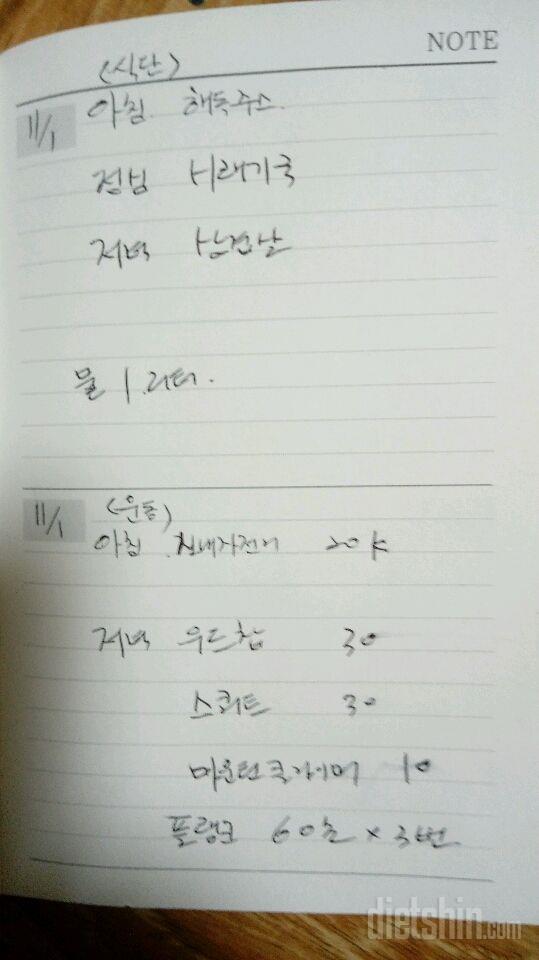 NOTE
(식단)
11/1 아침. 해독주스.
점심 시래기국
저녁 삼겹살
물 1리터.
11/1 (운동)
아침 실내자전거 20k
저녁 우드찹 30
스쿼트 30
마운턴클라이머 10
플랭크 60초 × 3번
dietshin.com